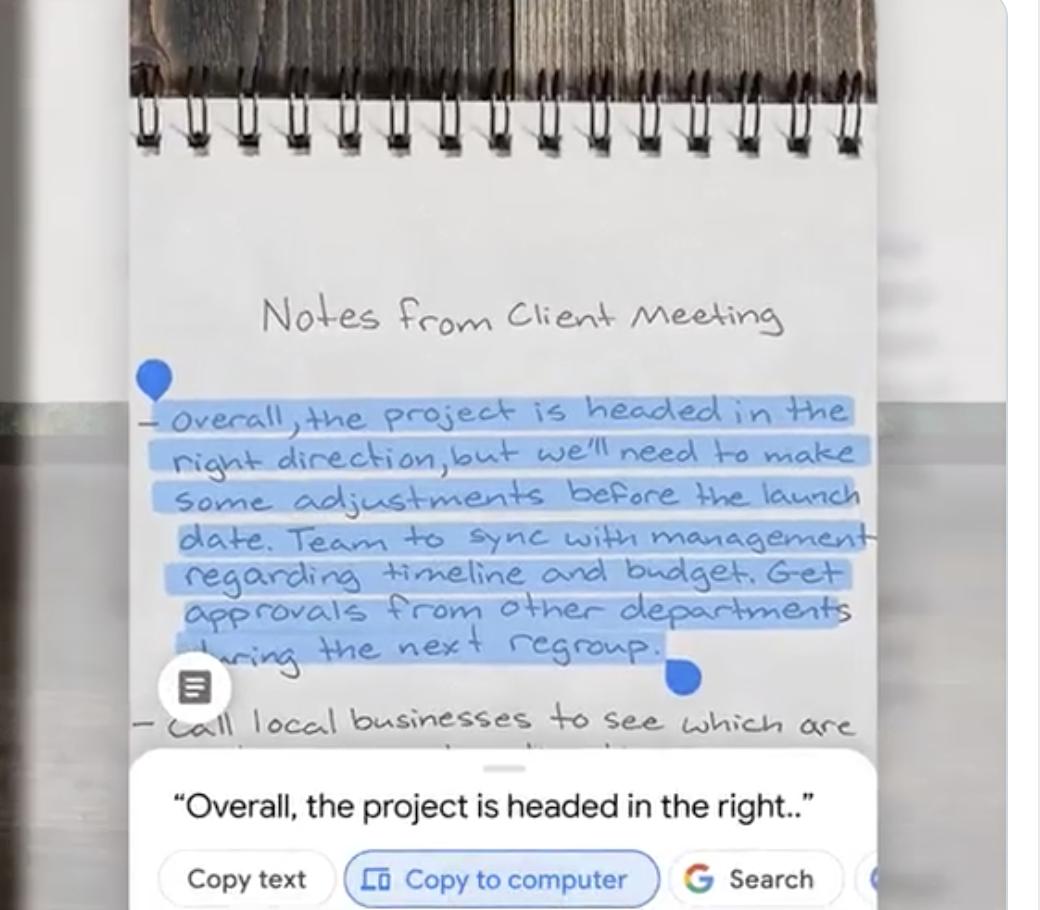 Notes from Client Meeting
– Overall, the project is headed in the
right direction, but we'll need to make
some adjustments before the launch
date. Team to sync with management
regarding timeline and budget. Get
approvals from other departments
during the next regroup.
– Call local businesses to see which are
“Overall, the project is headed in the right..”
Copy text
Copy to computer
Search